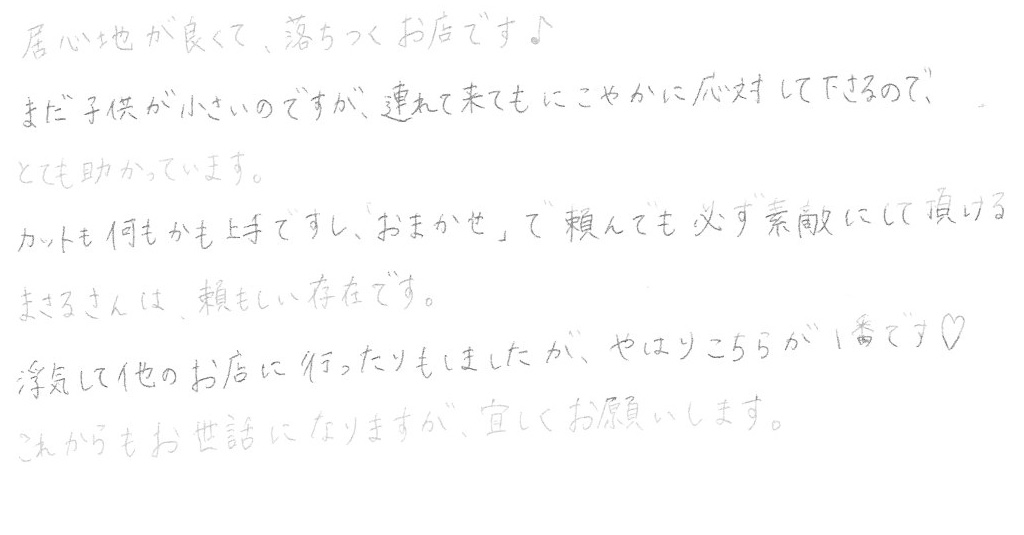 居心地が良くて、落ちつくお店です♪
まだ子供が小さいのですが、連れて来てもにこやかに応対して下さるので、
とても助かっています。
カットも何もかも上手ですし、「おまかせ」で頼んでも必ず素敵にして頂ける
まさるさんは、頼もしい存在です。
浮気して他のお店に行ったりもしましたが、やはりこちらが1番です♡
これからもお世話になりますが、宜しくお願いします。